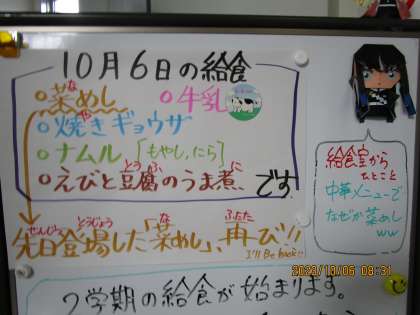 10月6日の給食
○菜めし ○牛乳
な
○焼きギョウザ
や
○ナムル[もやし,にら]
○えびと豆腐のうま煮 です
とうふ に
先日登場した「菜めし」、再び!!
せんじつ とうじょう な ふたた
I'll Be back!!
給食室から
ひとこと
中華メニューで
なぜか菜めし
ww
2020/10/06 08:31
2学期の給食が始まります。